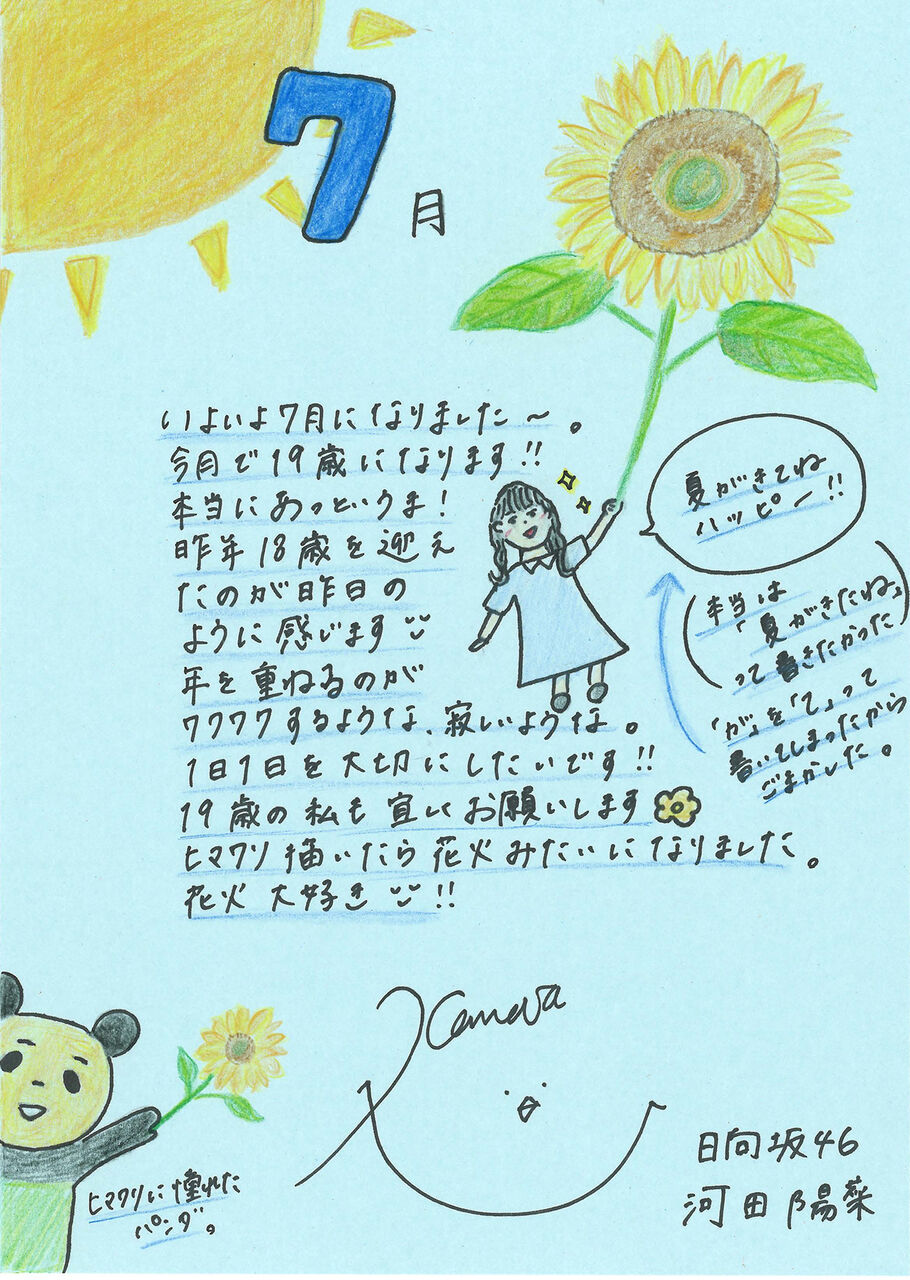 7月
いよいよ7月になりました〜。
今月で19歳になります!!
本当にあっというま!
昨年18歳を迎え
たのが昨日の
ように感じます
年を重ねるのが
ワクワクするような、寂しいような。
1日1日を大切にしたいです!!
19歳の私も宜しくお願いします
ヒマワリ描いたら花火みたいになりました。
花火大好き!!
夏がきてね
ハッピー!!
(本当は
「夏がきたね」
って書きたかった)
「が」を「て」って
書いてしまったから
ごまかした。
ヒマワリに憧れた
パンダ。
Kawata
日向坂46
河田陽菜